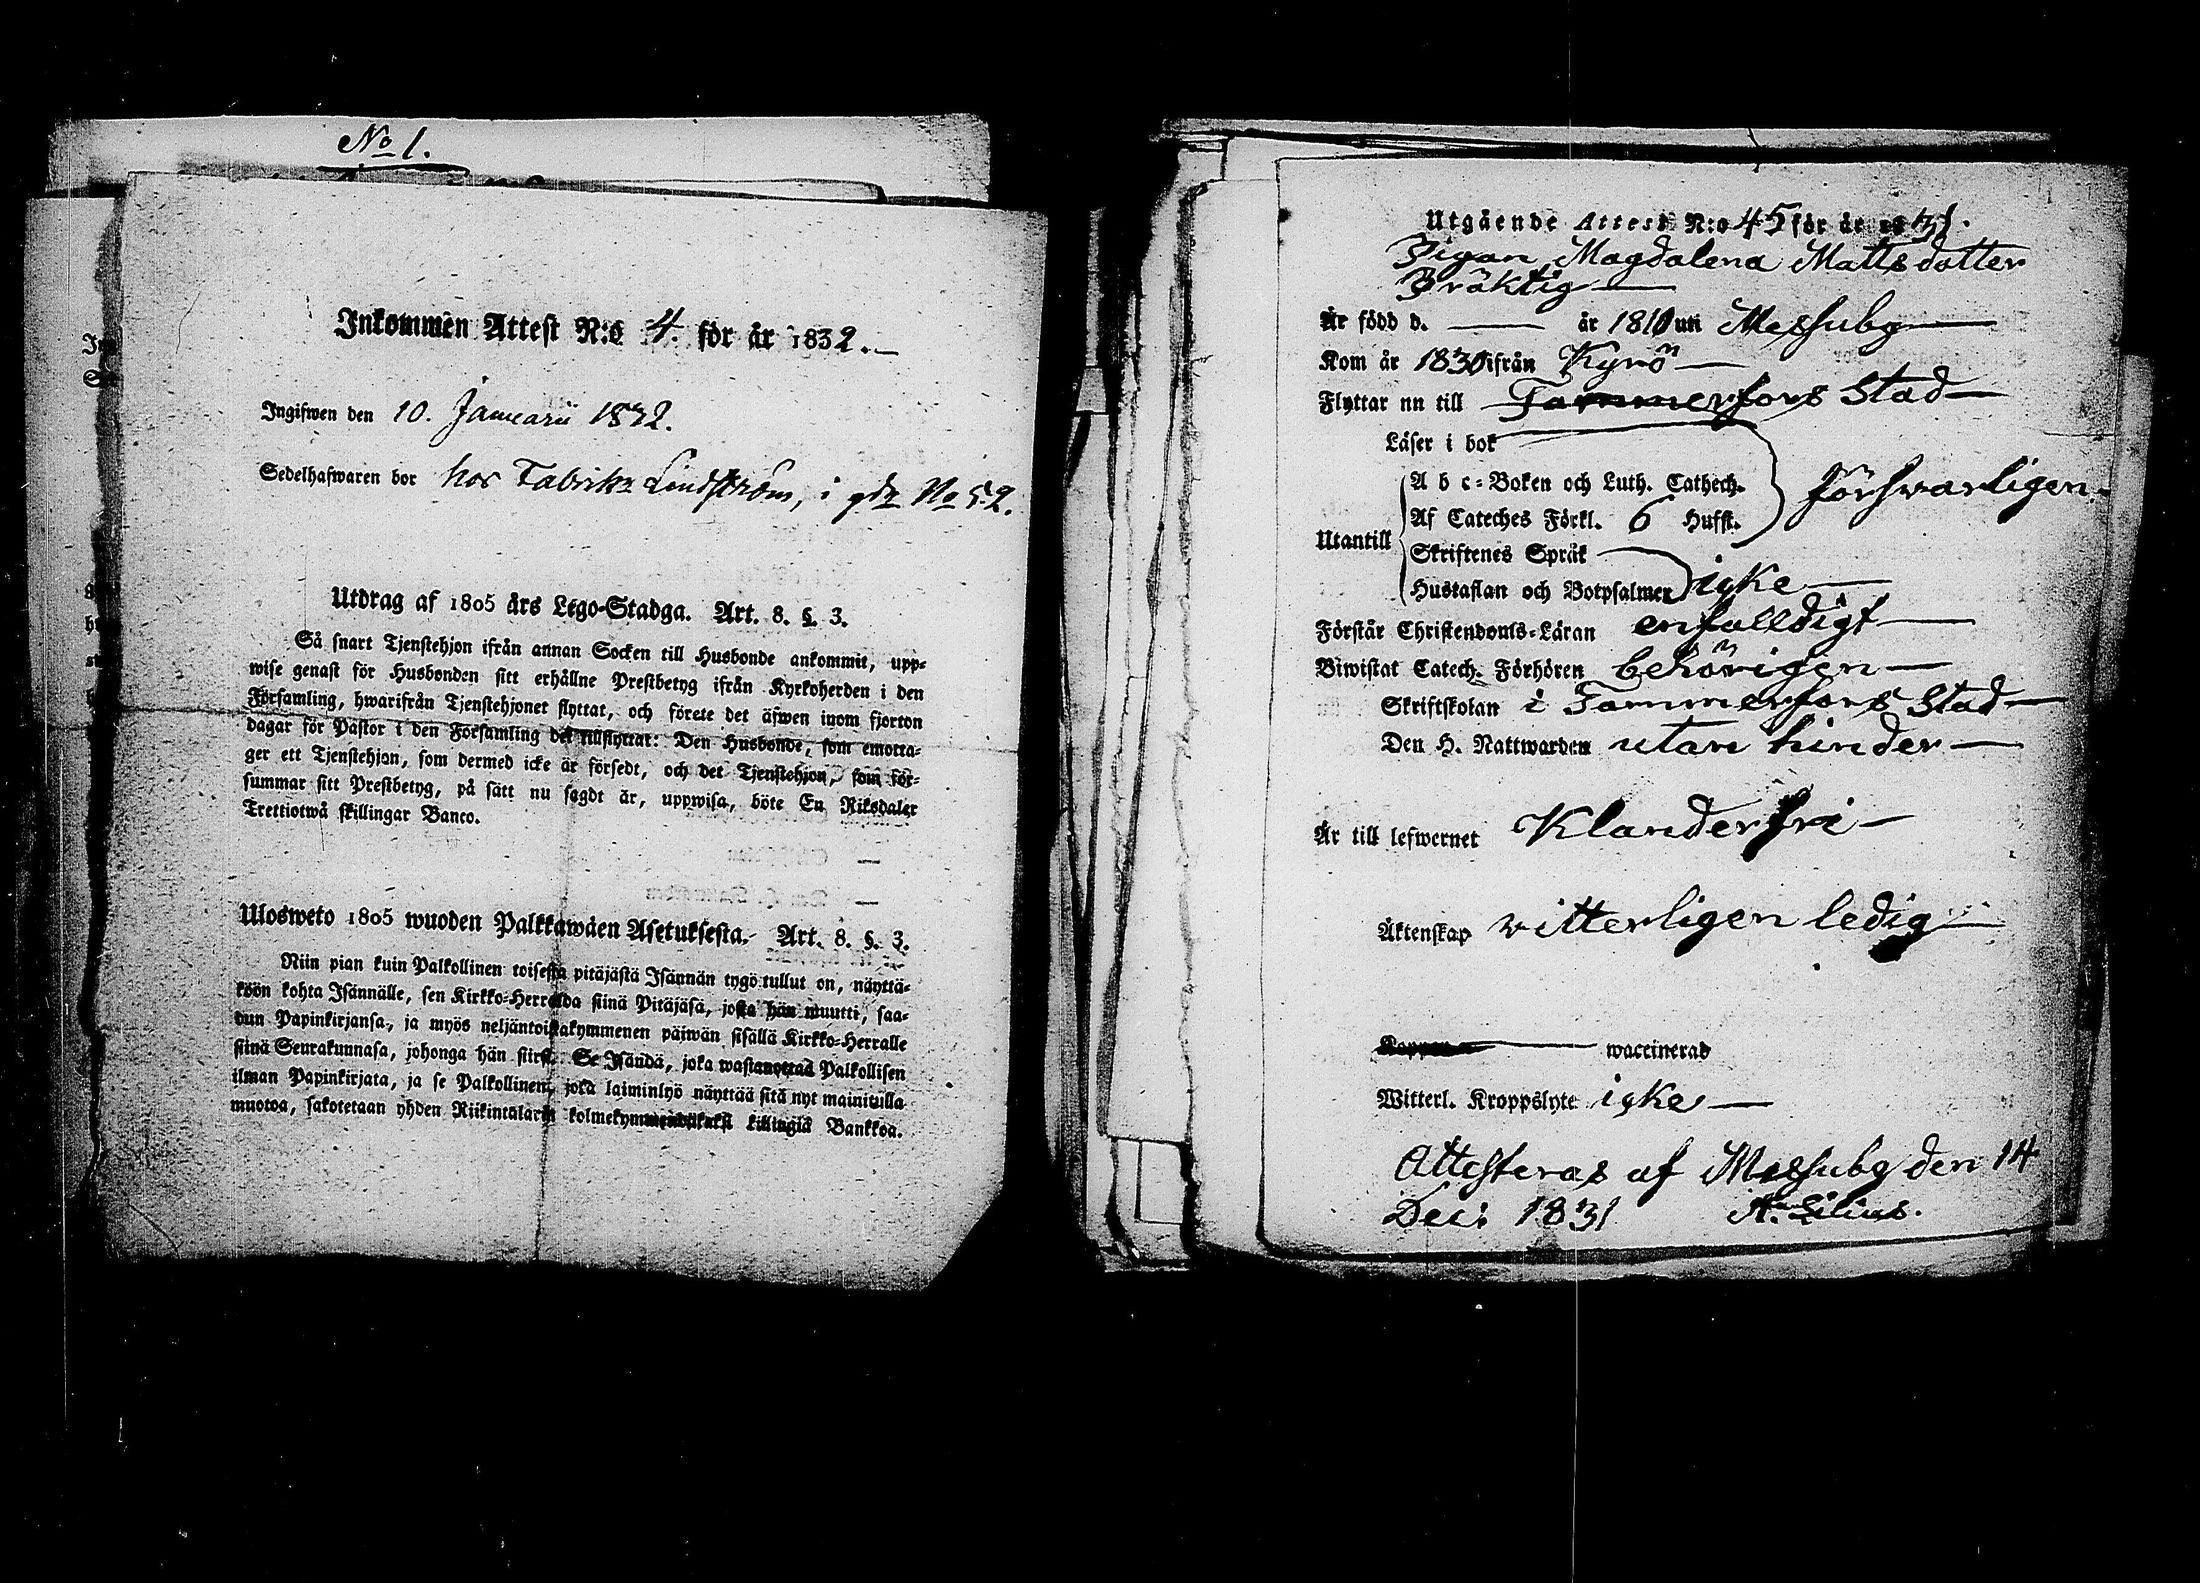 No 1.
Inkommen Attest N:o 4. för år 1832.
Ingifwen den 10. Januarii 1832.
Sedelhafwaren bor hos Fabrikr Lindström, i gdn No 52.
Utdrag af 1805 års Lego-Stadga. Art. 8. §. 3.
Så snart Tjenstehjon ifrån annan Socken till Husbonde ankommit, upp-
wise genast för Husbonden sitt erhållne Prestbetyg ifrån Kyrkoherden i den
Församling, hwarifrån Tjenstehjonet flyttat, och förete det äfwen inom fjorton
dagar för Pastor i den Församling det tillflyttat: Den Husbonde, som emotta-
ger ett Tjenstehjon, som dermed icke är försedt, och det Tjenstehjon, som för-
summar sitt Prestbetyg, på sätt nu sagdt är, uppwisa, böte En Riksdaler
Trettiotwå skillingar Banco.
Ulosweto 1805 wuoden Palkkawäen Asetuksesta. Art. 8. §. 3.
Niin pian kuin Palkollinen toisesta pitäjästä Isännän tygö tullut on, näyttä-
köön kohta Isännälle, sen Kirkko-Herralda siinä Pitäjäsä, josta hän muutti, saa-
dun Papinkirjansa, ja myös neljäntoistakymmenen päiwän sisällä Kirkko-Herralle
siinä Seurakunnasa, johonga hän siirsi. Se Isändä, joka wastanottaa Palkollisen
ilman Papinkirjata, ja se Palkollinen, joka laiminlyö näyttää sitä nyt mainitulla
muotoa, sakotetaan yhden Riikintalarin kolmekymmendäkaksi killingiä Bankkoa.
Utgående Attest N:o 45 för år 1831.
Pigan Magdalena Mattsdotter
Präktig
Är född d. år 1810 uti Messuby
Kom år 1830 ifrån Kyrö
Flyttar nu till Tammerfors Stad
Läser i bok
A b c-Boken och Luth. Cathech.
försvarligen.
Af Cateches Förkl. 6 Hufst.
Utantill
Skriftenes Språk
Hustaflan och Botpsalmer icke
Förstår Christendoms-Läran enfalldigt
Biwistat Catech. Förhören behörigen
Skriftskolan i Tammerfors Stad
Den H. Nattwarden utan hinder
Är till lefwernet Klanderfri
Äktenskap vitterligen ledig
Koppor waccinerad
Witterl. Kroppslyte icke
Attesteras af Messuby den 14
Dec: 1831 A. Lilius.